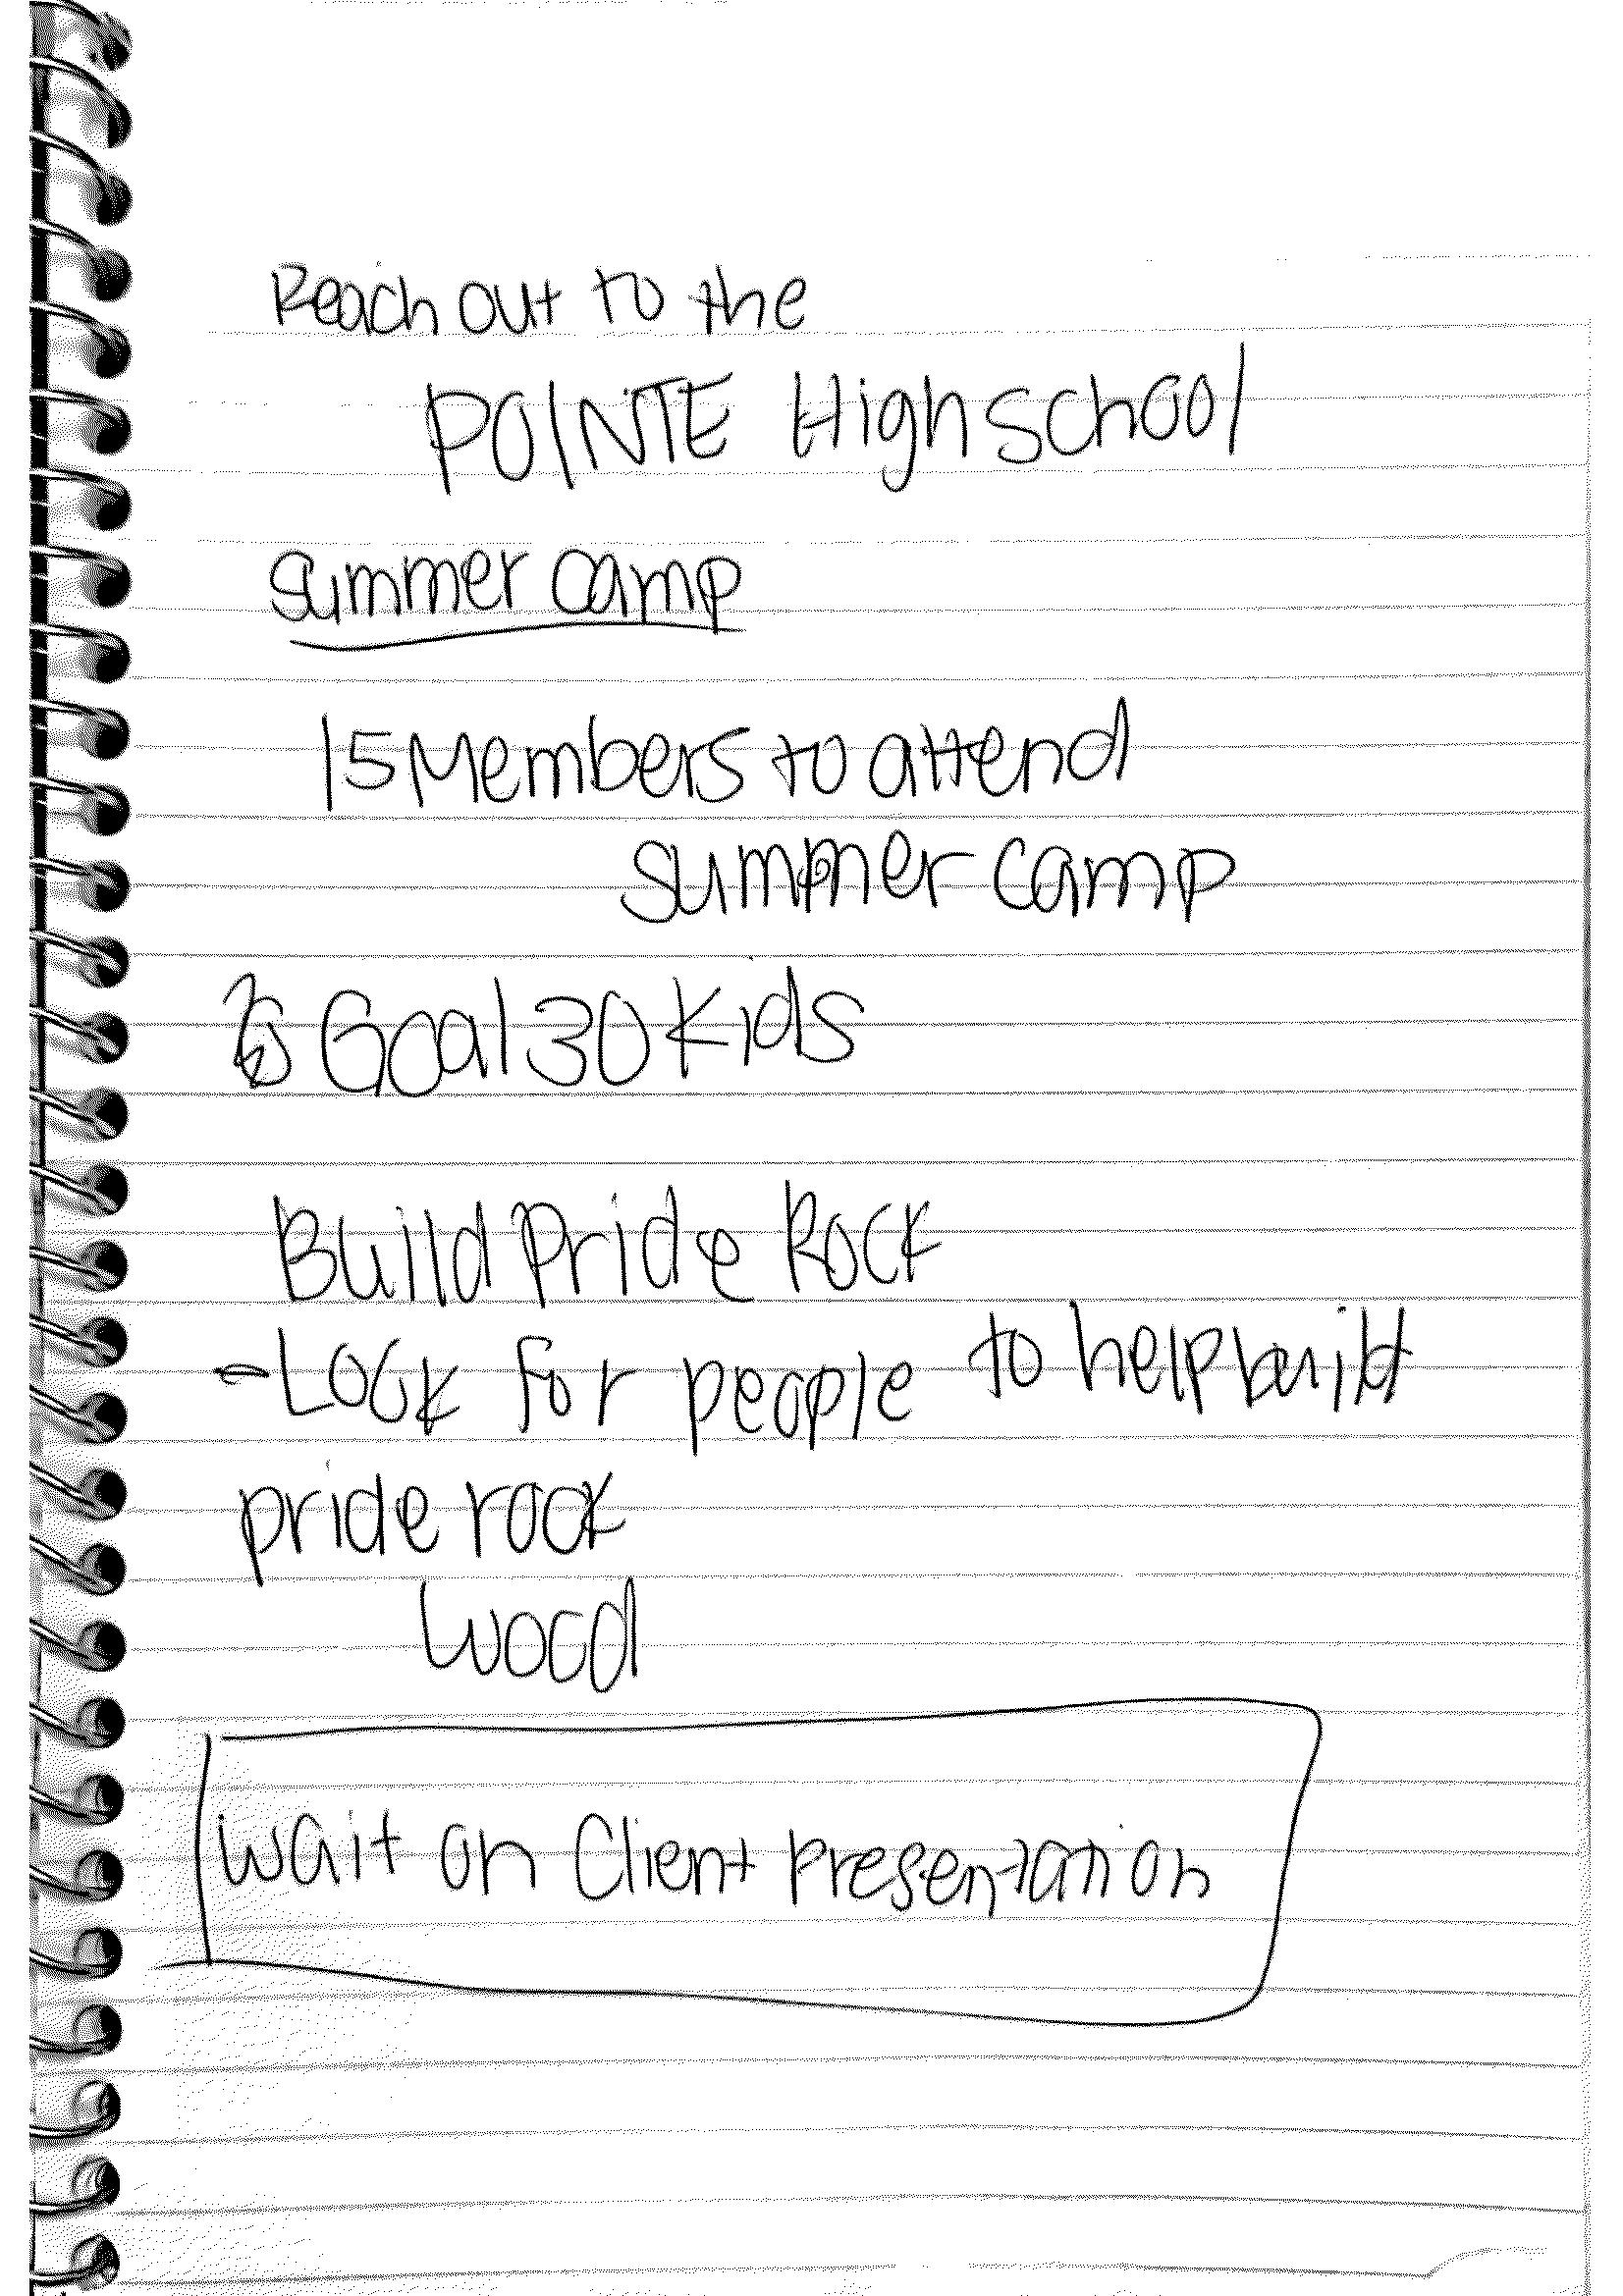 Reach out to the
POINTE High school
summer camp
15 Members to attend
summer camp
Goal 30 Kids
Build Pride Rock
- Look for people to help build
pride rock
Wood
Wait on Client Presentation